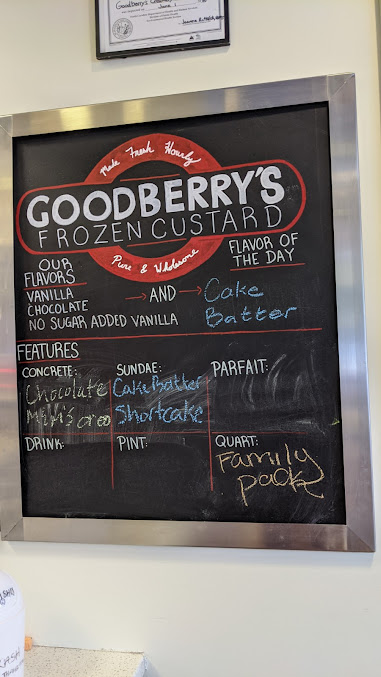 Goodberry's Creamery
Made Fresh Hourly
GOODBERRY'S
FROZEN CUSTARD
Pure & Wholesome
OUR
FLAVORS
FLAVOR OF
THE DAY
VANILLA
CHOCOLATE
NO SUGAR ADDED VANILLA
→ AND →
Cake
Batter
FEATURES
CONCRETE:
Chocolate
M&M's oreo
SUNDAE:
Cake Batter
Shortcake
PARFAIT:
DRINK:
PINT:
QUART:
Family
pack